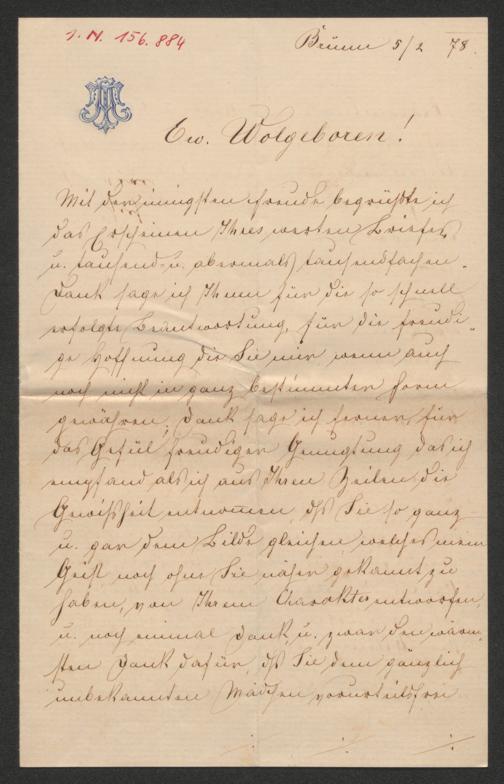 I. N. 156.884
Brünn 5/2 78.
Ew. Wolgeboren!
Mit der innigsten Freude begrüßte ich
das Erscheinen Ihres werten Briefes,
u. tausend- u. abermals tausendfachen
Dank sage ich Ihnen für die so schnell
erfolgte Beantwortung, für die freudi-
ge Hoffnung die Sie mir wenn auch
noch nicht in ganz bestimmter Form
gewähren; Dank sage ich ferner, für
das Gefül freudiger Genugtung das ich
empfand als ich aus Ihren Zeilen die
Gewißheit entnommen, dß Sie so ganz
u. gar dem Bilde gleichen welches mein
Geist noch ohne Sie näher gekannt zu
haben, von Ihrem Charakter entworfen,
u. noch einmal Dank, u. zwar den wärm-
sten Dank dafür, dß Sie dem gänzlich
unbekannten Mädchen vorurteilsfrei